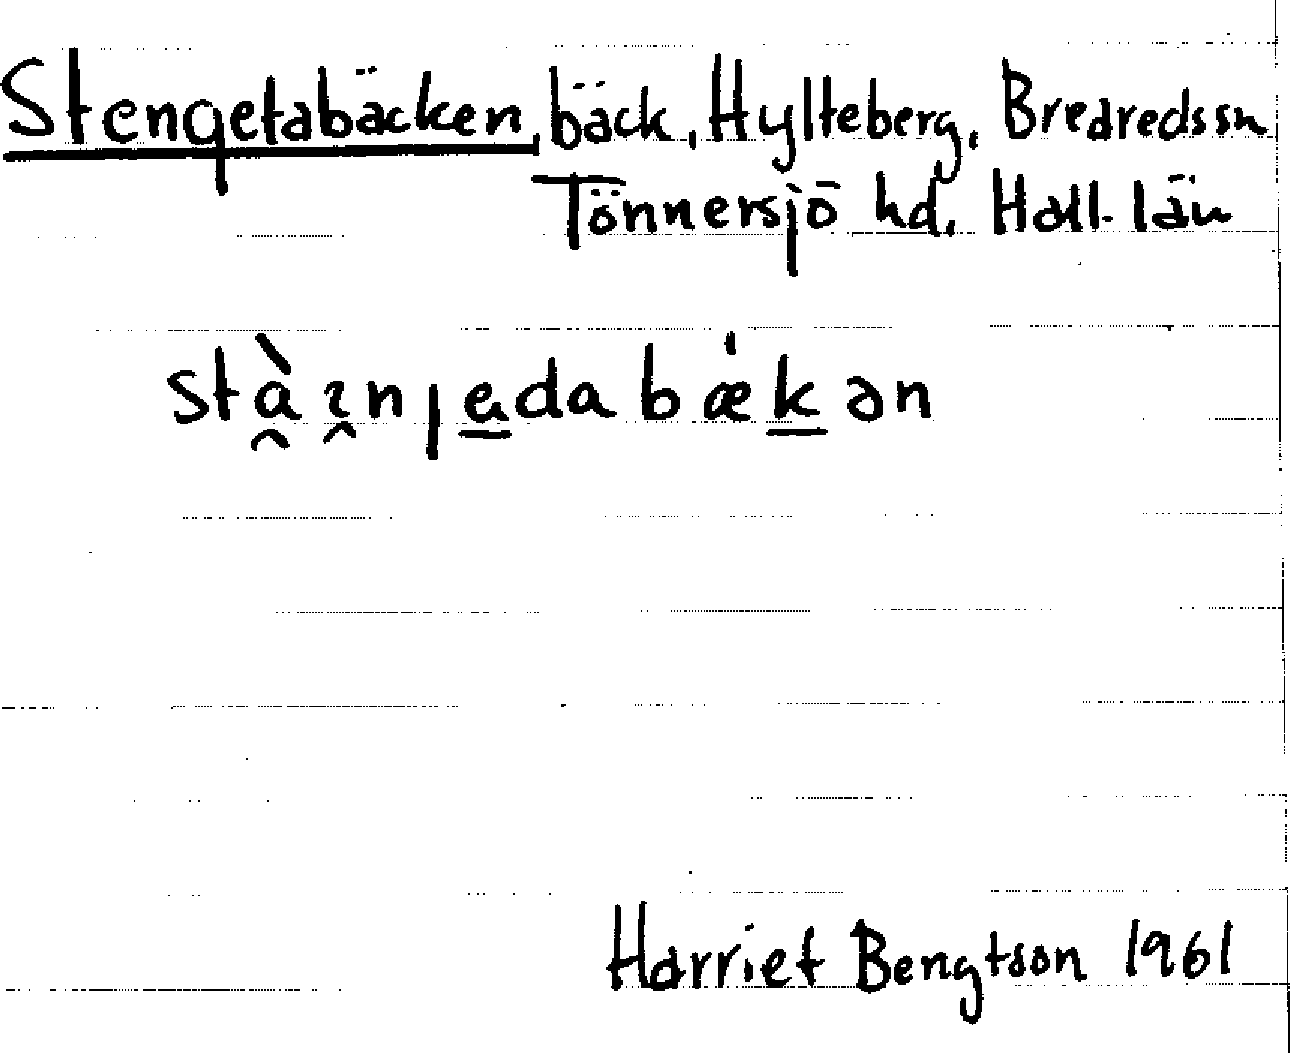 Stengetabäcken, bäck, Hylteberg, Breareds sn
Tönnersjö hd. Hall. län
stàınȷedabǽkən
Harriet Bengtson 1961